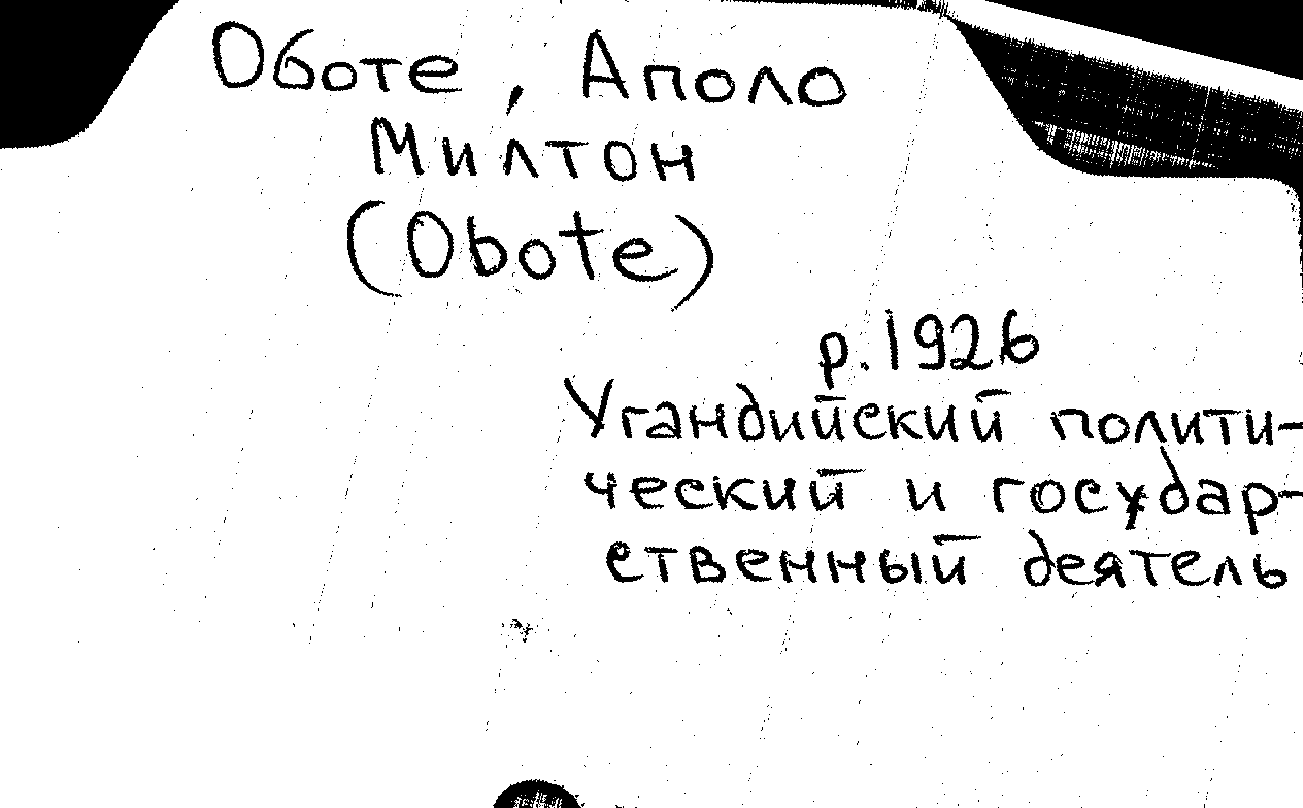 Оботе, Аполо
Милтон
(Obote)
р. 1926
Угандийский полити-
ческий и государ-
ственный деятель